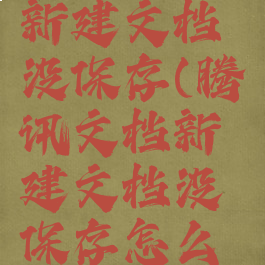 新建文档
没保存(腾
讯文档新
建文档没
保存怎么